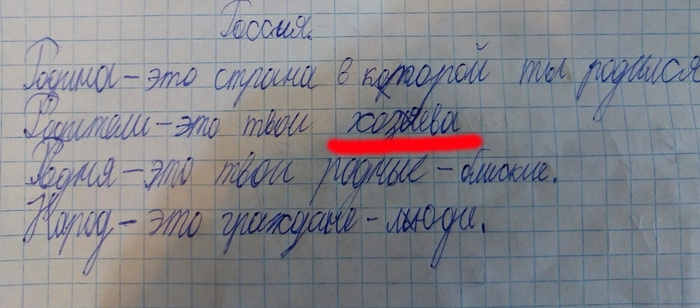 Россия.
Родина – это страна в которой ты родился
Родители – это твои хозяева
Родня – это твои родные – близкие.
Народ – это граждане – люди.